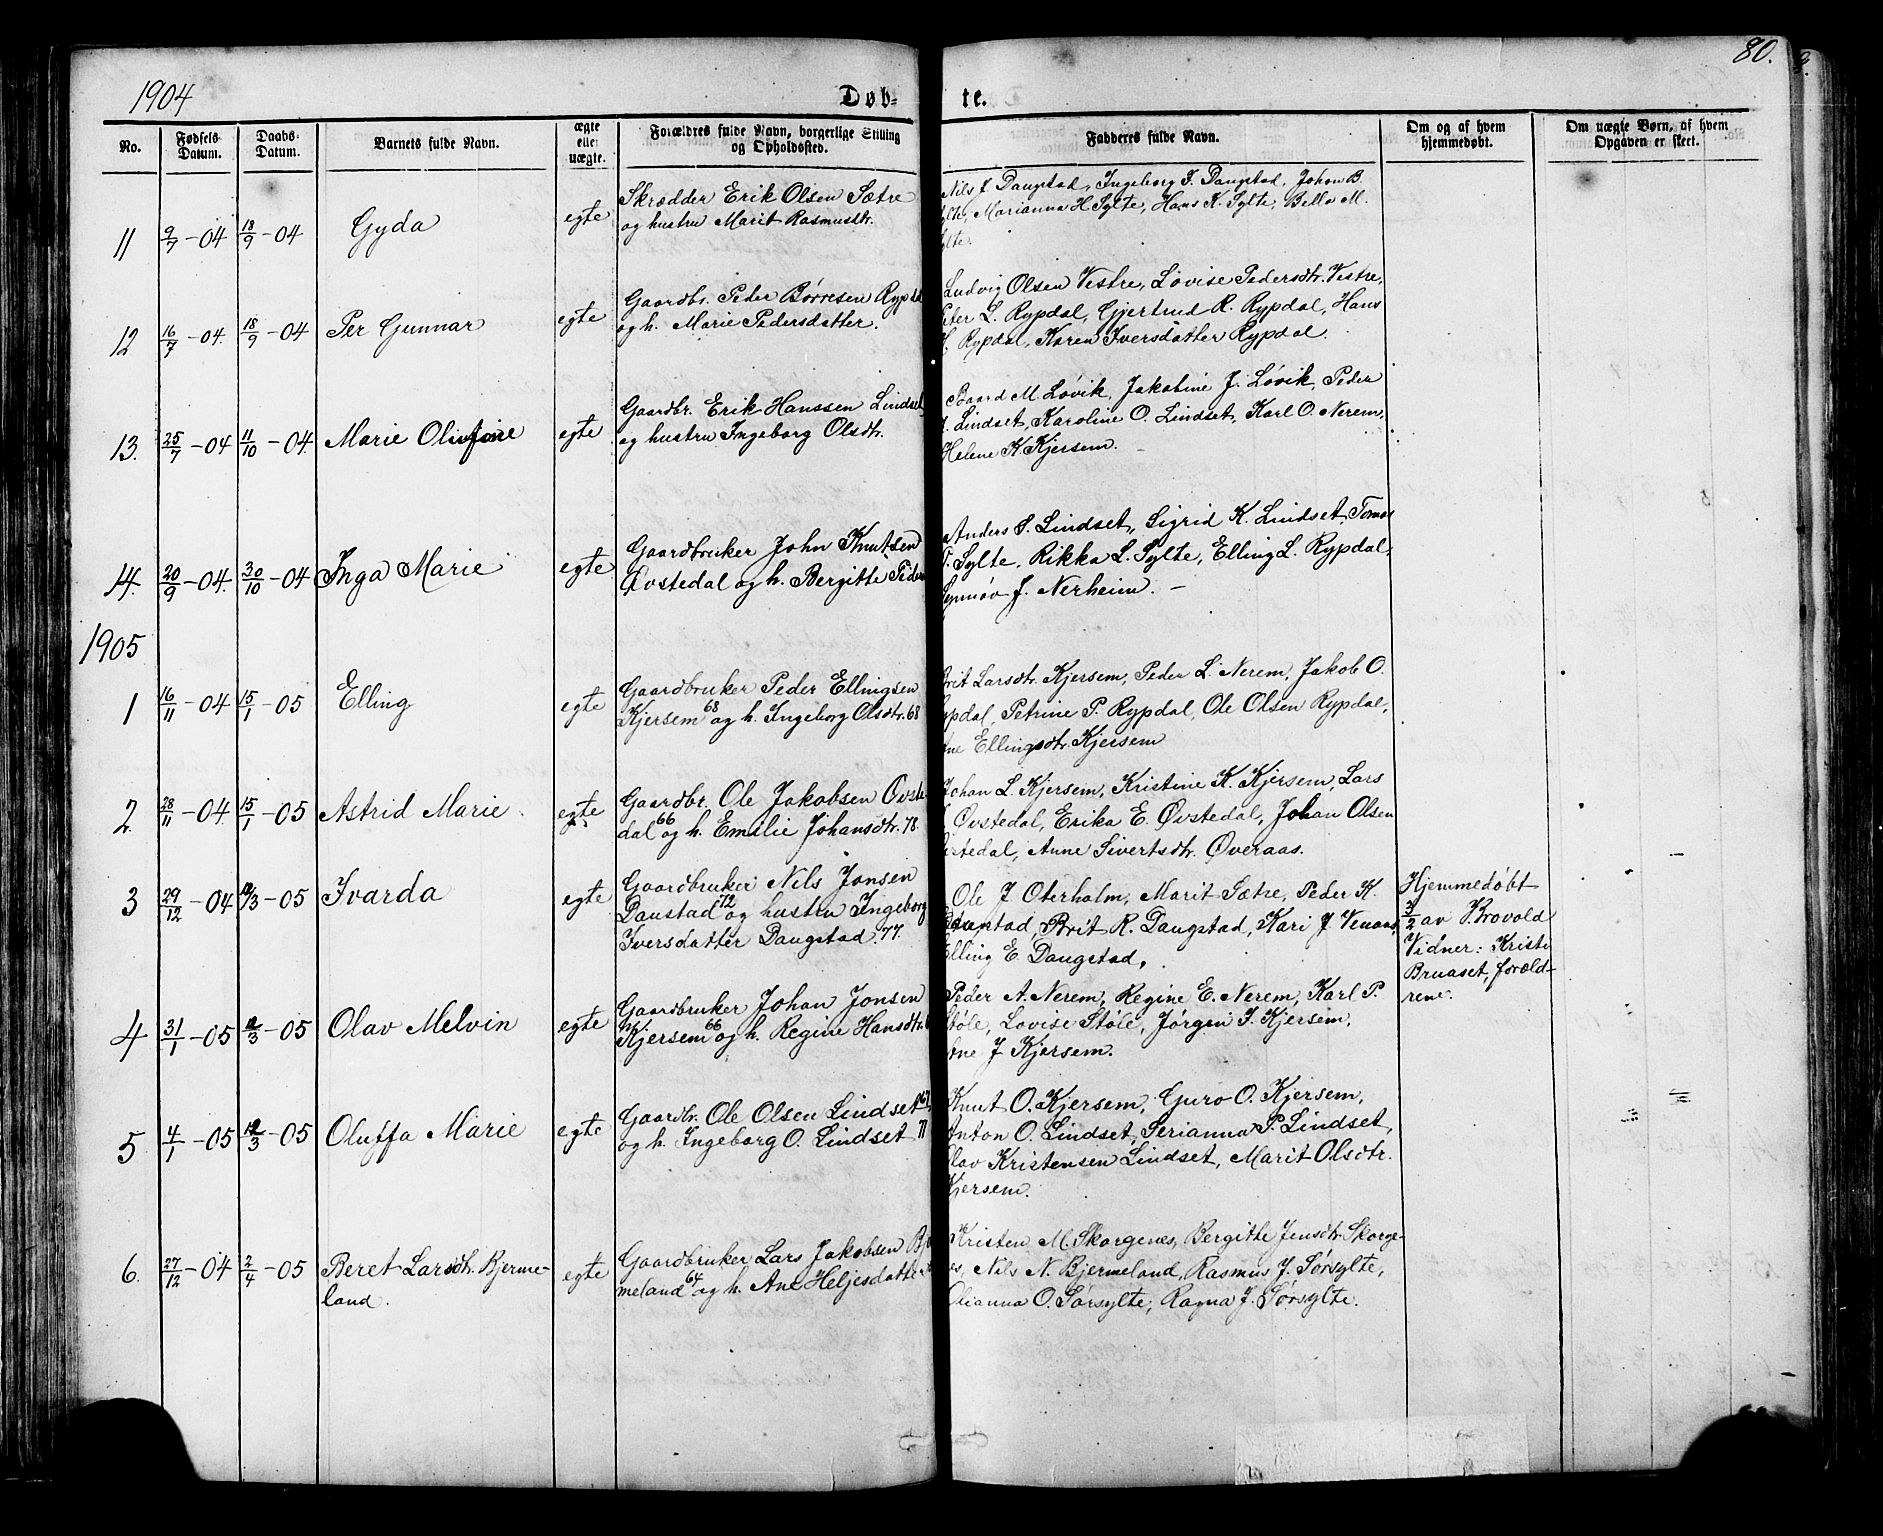 1904
Døb-
te.
80.
No.
Fødsels-
Datum.
Daabs-
Datum.
Barnets fulde Navn.
ægte
eller
uægte.
Forældres fulde Navn, borgerlige Stilling
og Opholdssted.
Fadderes fulde Navn.
Om og af hvem
hjemmedøbt.
Om uægte Børn, af hvem
Opgaven er skeet.
11
9/7 -04
18/9 -04
Gyda
egte
Skrædder Erik Olsen Sætre
og hustru Marit Rasmusdtr.
Nils J. Daugstad, Ingeborg I. Daugstad, Johan B.
Sylte, Marianna H. Sylte, Hans K. Sylte, Bella M.
Sylte.
12
16/7 -04.
18/9 -04
Per Gunnar
egte
Gaardbr. Peder Børresen Rypdal
og h. Marie Pedersdatter.
Ludvig Olsen Vestre, Lovise Pedersdtr. Vestre,
Peter L. Rypdal, Gjertrud R. Rypdal, Hans
Rypdal, Karen Iversdatter Rypdal.
13.
25/7 -04
11/10 -04.
Marie
egte
Gaardbr. Erik Hanssen Lindset
og hustru Ingeborg Olsdtr.
Baard M. Løvik, Jakobine J. Løvik, Peder
Lindset, Karoline O. Lindset, Karl O. Nerem,
Helene K. Kjersem. –
14.
20/9 -04.
30/10 -04
Inga Marie
egte
Gaardbruker John Knutsen
Øvstedal og h. Bergitte Peders
Anders S. Lindset, Sigrid K. Lindset, Tomas
T. Sylte, Rikka L. Sylte, Elling L. Rypdal,
Synnøv J. Nerheim. –
1905
1
16/11 -04
15/1 -05
Elling
egte
Gaardbruker Peder Ellingsen
Kjersem 68 og h. Ingeborg Olsdtr. 68
Brit Larsdtr. Kjersem, Peder L. Nerem, Jakob O.
Rypdal, Petrine P. Rypdal, Ole Olsen Rypdal,
Ane Ellingsdtr. Kjersem
2.
28/11 -04
15/1 -05
Astrid Marie
egte
Gaardbr. Ole Jakobsen Øvste-
dal 66 og h. Emilie Johansdtr. 78.
Johan L. Kjersem, Kristine K. Kjersem, Lars
Øvstedal, Erika E. Øvstedal, Johan Olsen
Øvstedal, Anne Sivertsdtr. Øveraas.
3
29/12 -04
12/3 -05
Ivarda
egte
Gaardbruker Nils Jonsen
Daustad 72 og hustru Ingeborg
Iversdatter Daugstad. 77.
Ole J Oterholm, Marit Sætre, Peder K.
Brit R. Daugstad, Kari J. Venaas,
Elling E. Daugstad.
Hjemmedøbt
2/2 av Brovold
Vidner: Kristi
Bruaset, foræld-
rene.
4
31/1 -05
12/3 -05
Olav Melvin
egte
Gaardbruker Johan Jonsen
Kjersem 66 og h. Regine Hansdtr.
Peder A. Nerem, Regine E. Nerem, Karl P.
Støle, Lovise Støle, Jørgen J. Kjersem,
Ane J Kjersem.
5
4/1 -05
12/3 -05
Oluffa Marie
egte
Gaardbr. Ole Olsen Lindset 67,
og h. Ingeborg O. Lindset 71
Knut O. Kjersem, Guro O. Kjersem,
Anton O. Lindset, Serianna P. Lindset,
Olav Kristensen Lindset, Marit Olsdtr.
Kjersem.
6.
27/12 -04
2/4 -05
Beret Larsdtr. Bjerme-
land.
egte
Gaardbruker Lars Jakobsen Bj
meland 64 og h. Ane Heljesdatter
Kristen M. Skorgenes, Bergitte Jensdtr. Skorge-
es, Nils N. Bjermeland, Rasmus J. Sørsylte,
Olianna O. Sørsylte, Ragna J. Sørsylte.